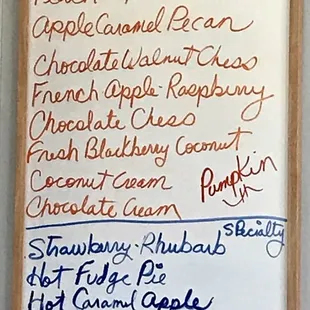 Apple Caramel Pecan
Chocolate Walnut Chess
French Apple-Raspburry
Chocolate Chess
Fresh Blackberry Coconut
Coconut Cream
Pumpkin
Chocolate Cream
Specialty
Strawbarry-Rhubarb
Hot Fudge Pie
Hot Caramel Apple